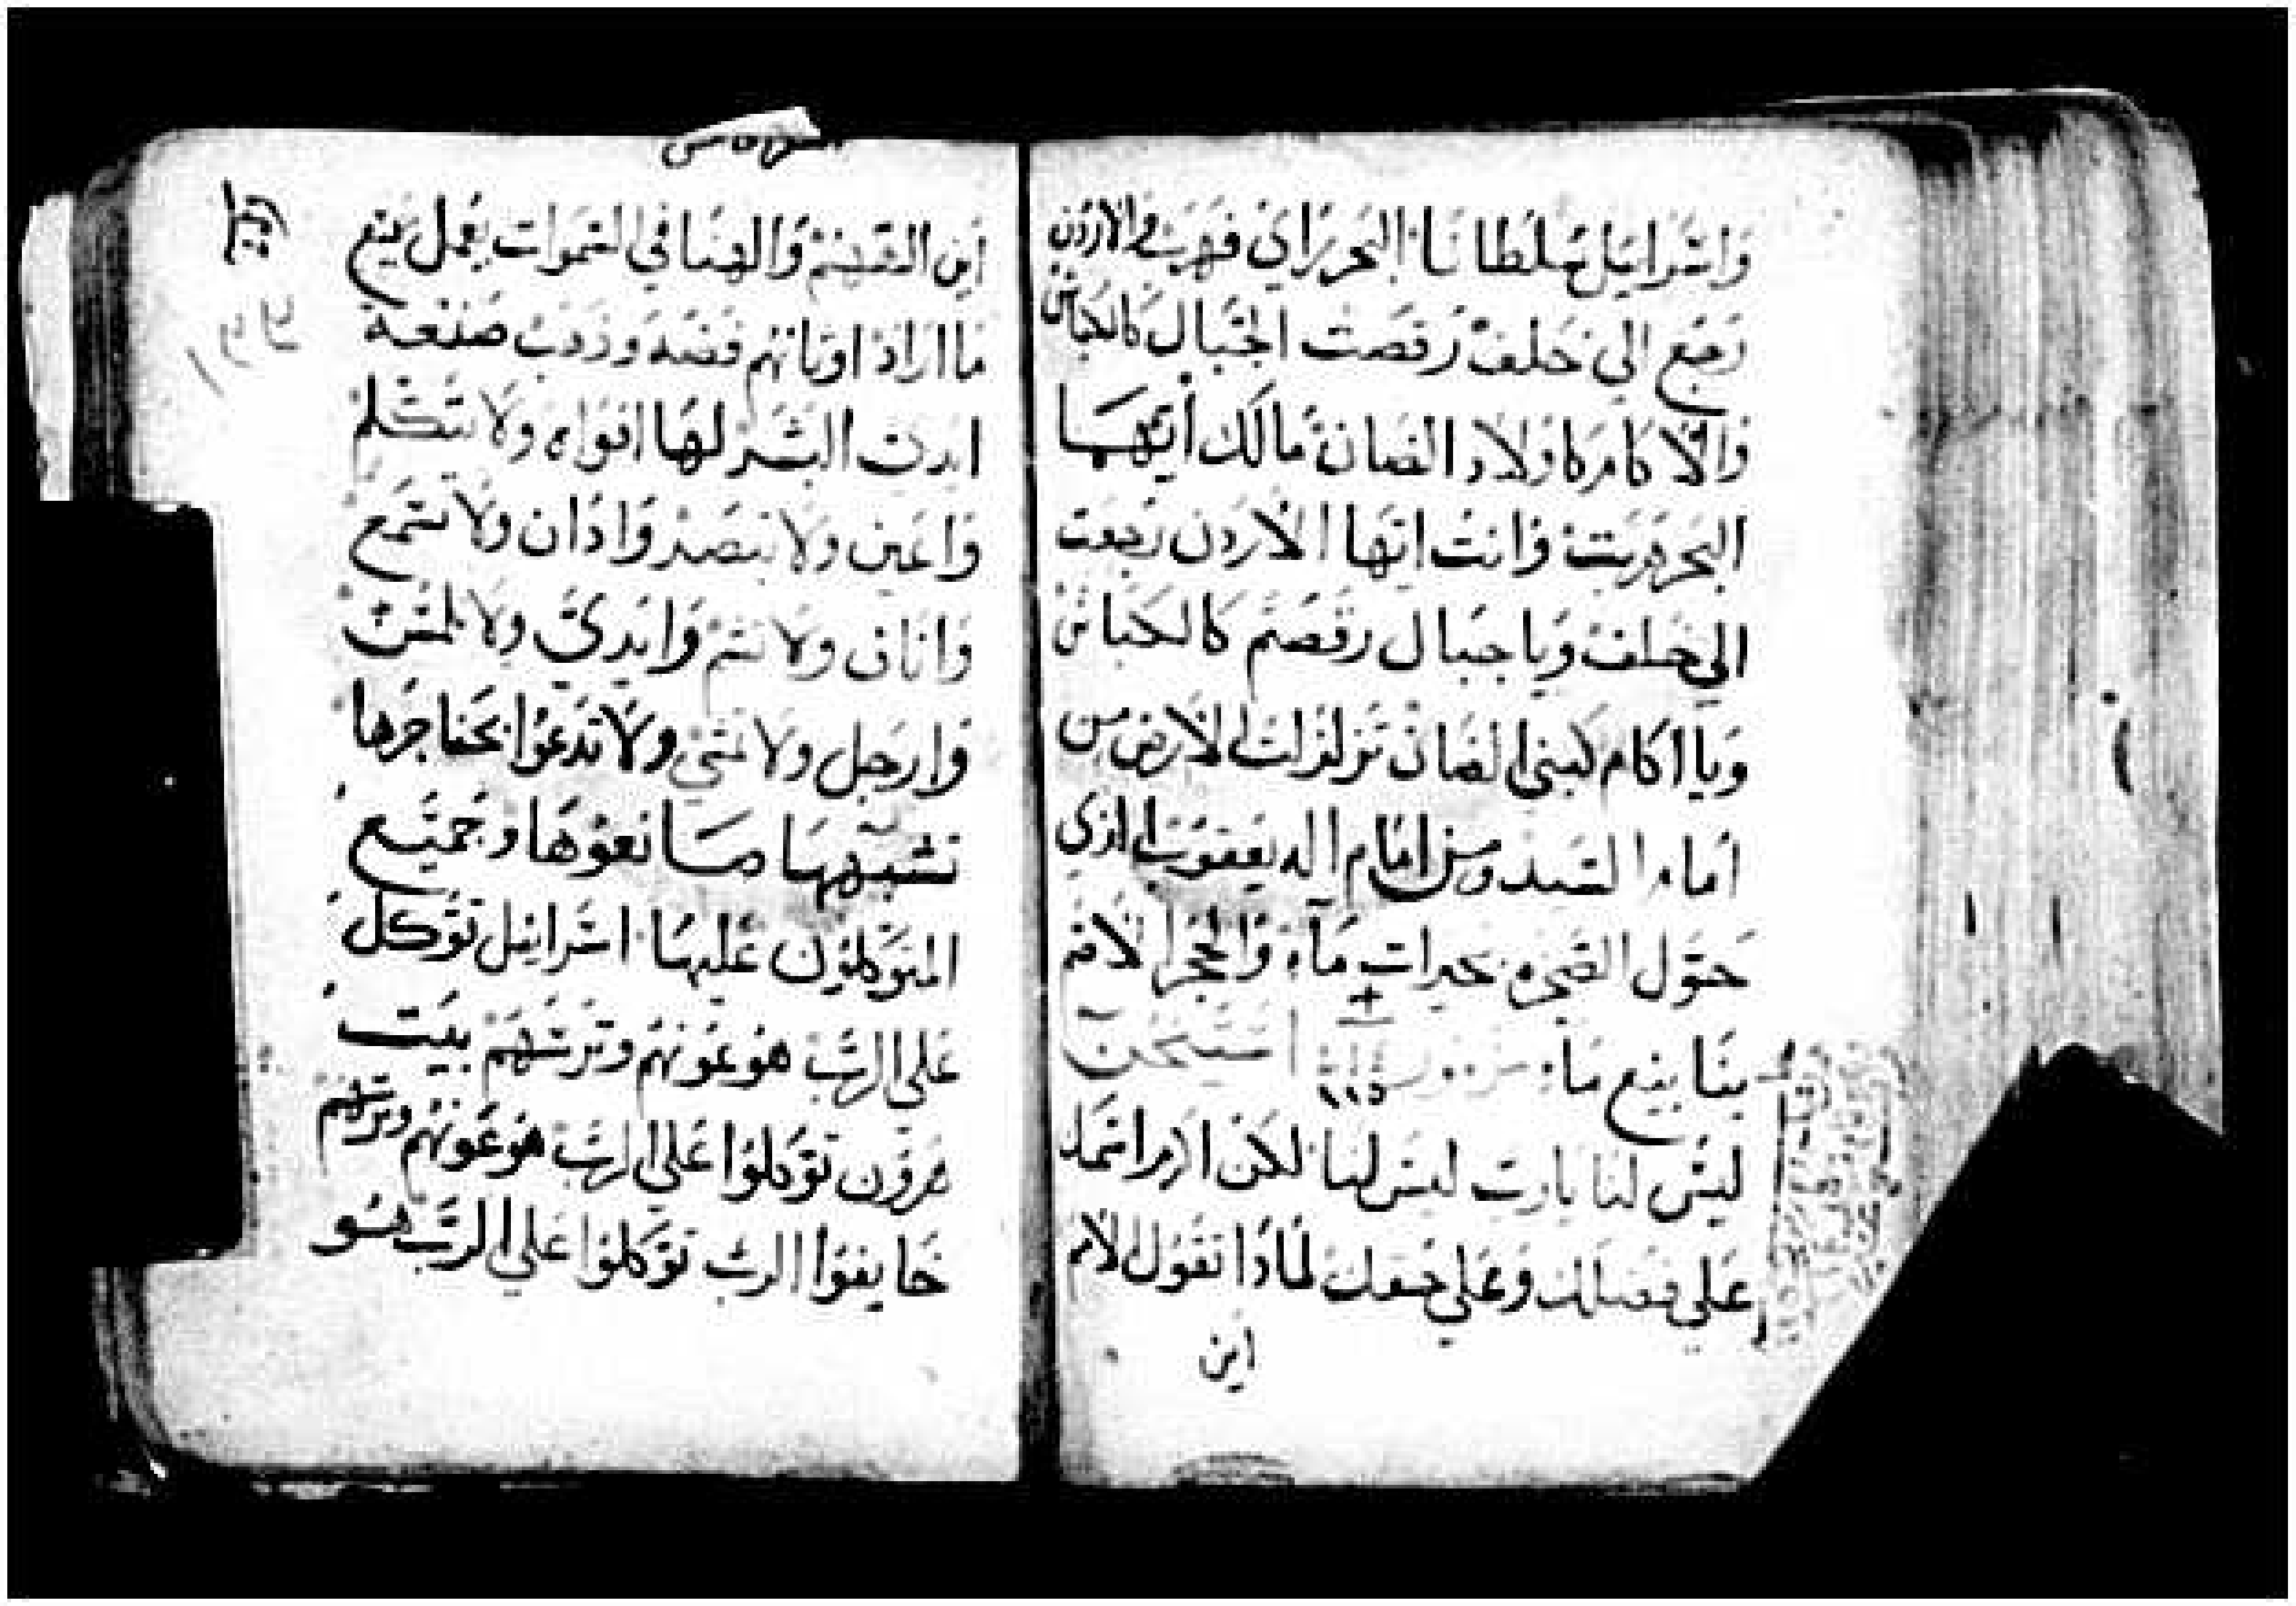 واسرايل سلطانا البحر راي فهرب والاردن
رجع الي خلف رقصت الجبال كالكباش
والاكام كاولاد الضان مالك ايها
البحر هربت وانت ايها الاردن رجعت
الي خلف ويا جبال رقصتم كالكباش
ويا اكام كبني الضان تزلزلت الارض من
امام السيد ومن امام اله يعقوب الذي
حول الصخره بحيرات ماء والحجر الاصم
ينابيع ماء
١١٥
ليس لنا يارب ليس لنا لكن لاسمك
علي فضلك وعلي لماذا تقول الامم
اين
اين الههم والهنا في السموات يعمل جميع
ما اراد اوثانهم فضه وذهب صنعة
ايدي البشر لها افواه ولا تتكلم
واعين ولا تبصر واذان ولا تسمع
واناف ولا تشم وايدي ولا تلمس
وارجل ولا تمشي ولا تدعوا بحناجرها
تشبهها صانعوها وجميع
المتوكلون عليها اسرايل توكل
علي الرب هو عونهم وترسهم بيت
هرون توكلوا علي الرب هو عونهم وترسهم
خايفوا الرب توكلوا علي الرب هو